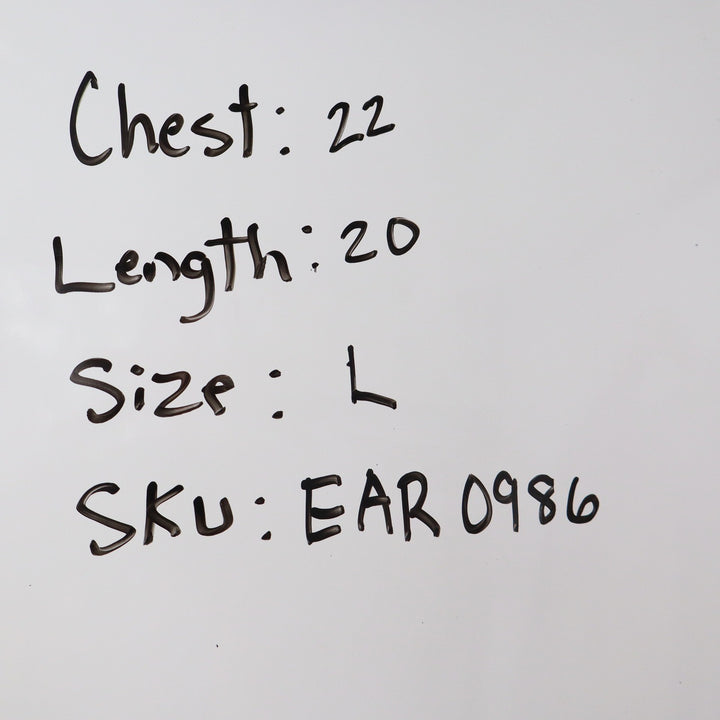 Chest: 22
Length: 20
Size: L
SKU: EAR 0986